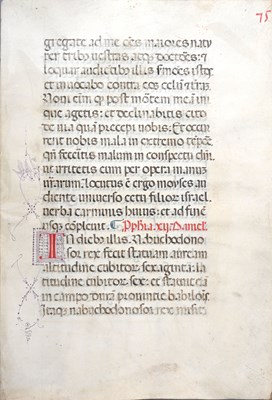 75
gregate ad me oēs maiores natu
per tribꝰ vestras atqꝫ doctores: ⁊
loquar audiētibꝰ illis ſmōes istos
et inuocabo contra eos celū ⁊ trā.
Noui eim qꝫ post mōtem meā ini
que agetis: et declinabitis cito
de via quā precepi vobis: Et occurrent
vobis mala in extremo tēpore:
qn̄ feceritis malum in conspectu dn̄i
ut irritetis eum per opera manuū
vestrarum. Locutus ē ergo moyses au
diente universo cetu filiorū israel.
verba carminis huius: et ad finē
usqꝫ cōpleuit. Ꝓphīa. xij. Daniel.
In diebꝰ illis. Nabuchodono
sor rex fecit statuam auream
altitudine cubitorū sexaginta: la
titudine cubitorū sex: et statuit eā
in campo dura prouincie babilōis
Itaqꝫ nabuchodonosor rex misit